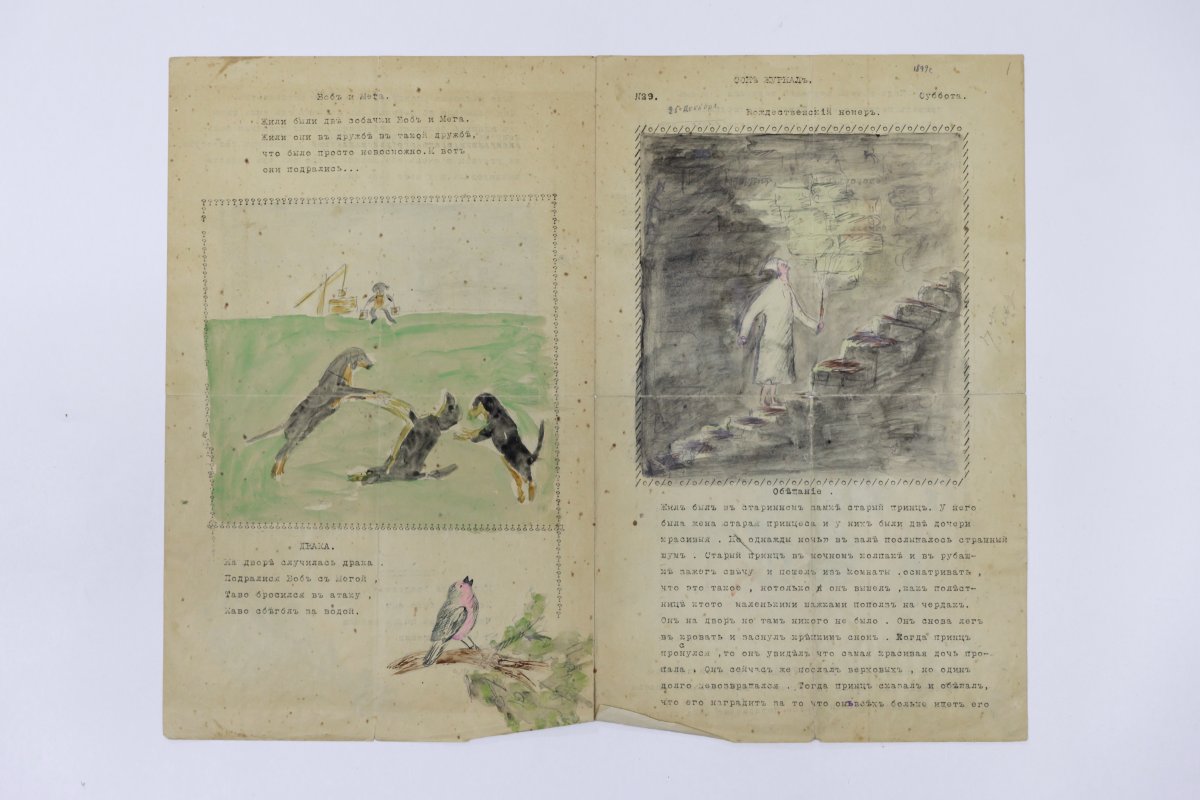 Бобъ и Мега.
Жили были двѣ собачки Бобъ и Мега.
Жили они въ дружбѣ въ такой дружбѣ,
что было просто невозможно.И вотъ
они подрались...
ДРАКА.
На дворѣ случилась драка .
Подрался Бобъ съ Мегой ,
Таво бросился въ атаку ,
Каво сбѣголъ за водой.
1899г
1
ЖУРНАЛЪ.
№29.
Суббота.
25-Декабря.
Рождественскій номеръ.
Обѣщаніе .
Жилъ былъ въ старинномъ замкѣ старый принцъ. У него
была жена старая принцеса и у нихъ были двѣ дочери
красивыя . Но однажды ночью въ залѣ послышалось странный
шумъ . Старый принцъ въ ночномъ колпакѣ и въ рубаш-
кѣ зажегъ свѣчу и пошелъ изъ комнаты .осматривать ,
что это такое , нотолько онъ вышелъ ,какъ полѣст-
ницѣ ктото маленькими шажками поползъ на чердакъ.
Онъ на дворъ но тамъ никого не было . Онъ снова легъ
въ кровать и заснулъ крѣпкимъ сномъ . Когда принцъ
проснулся ,то онъ увидѣлъ что самая красивая дочь про-
пала . Онъ сейчасъ же послалъ верховыхъ , но одинъ
долго невозвращался . Тогда принцъ сказалъ и обѣщалъ,
что его наградитъ за то что онъ всѣхъ больше ищетъ его